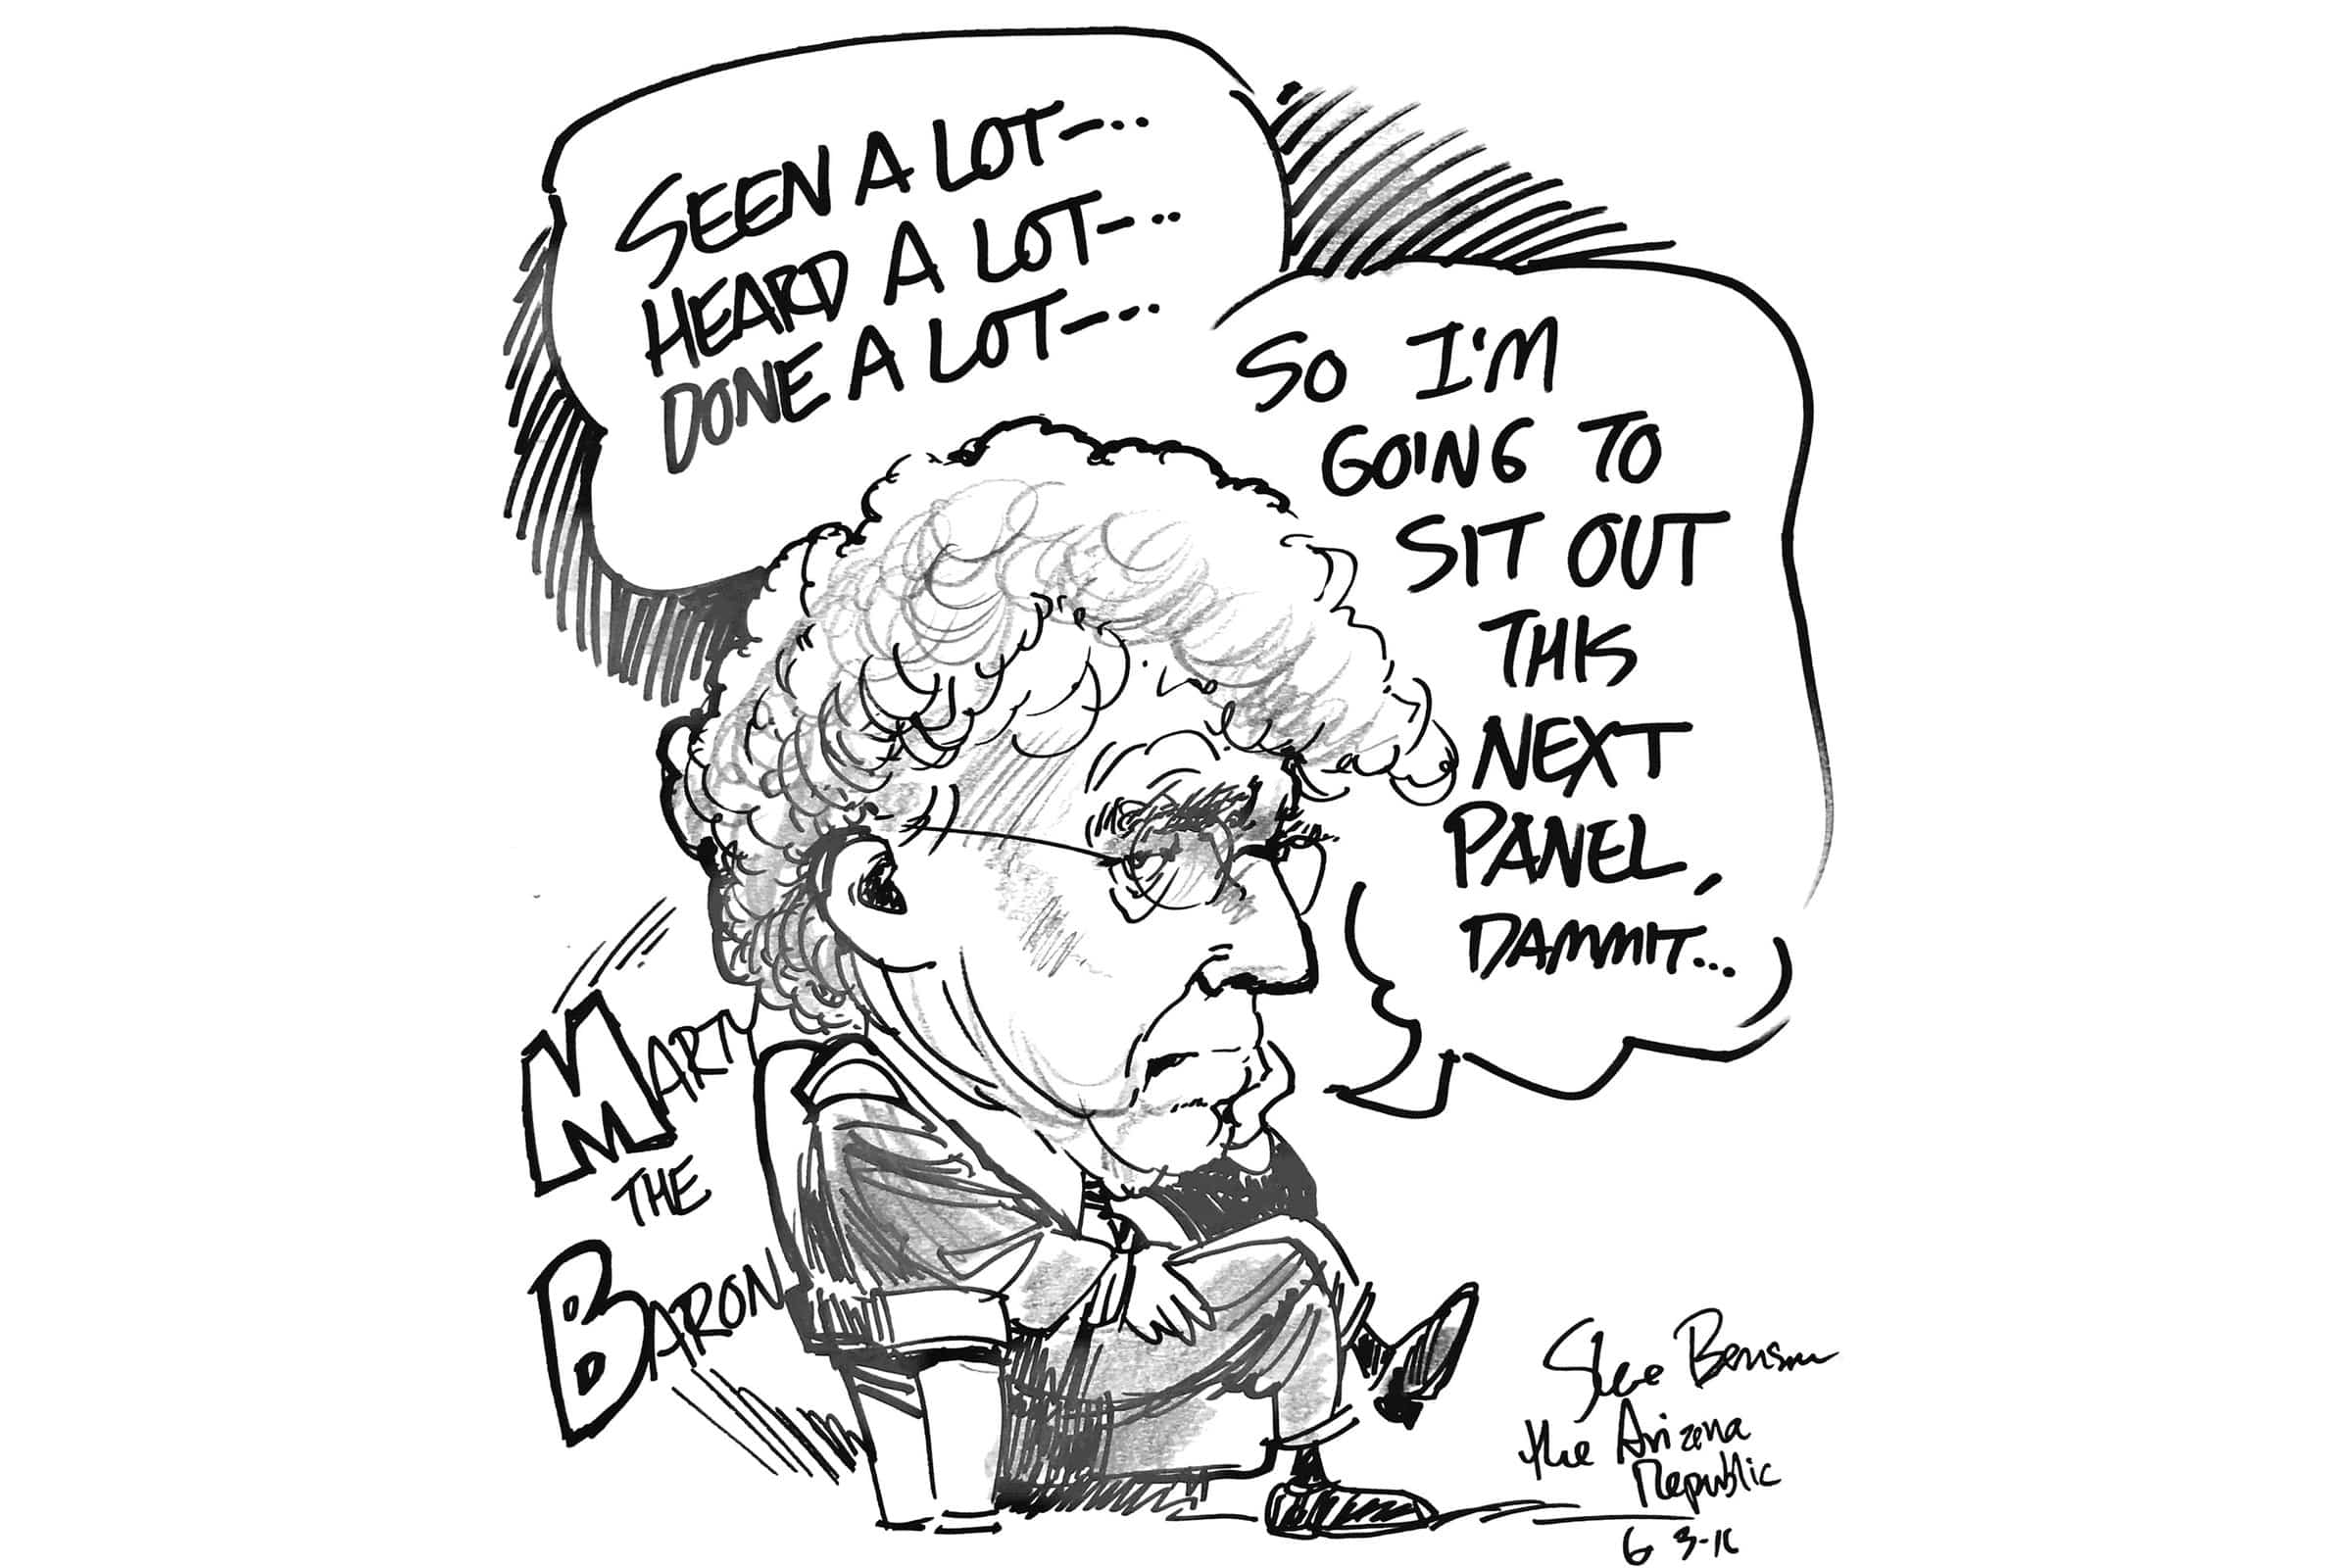 SEEN A LOT--...
HEARD A LOT--...
DONE A LOT--...
SO I'M
GOING TO
SIT OUT
THIS
NEXT
PANEL,
DAMMIT...
MARTY
THE
BARON
Steve Benson
the Arizona
Republic
6 3-16